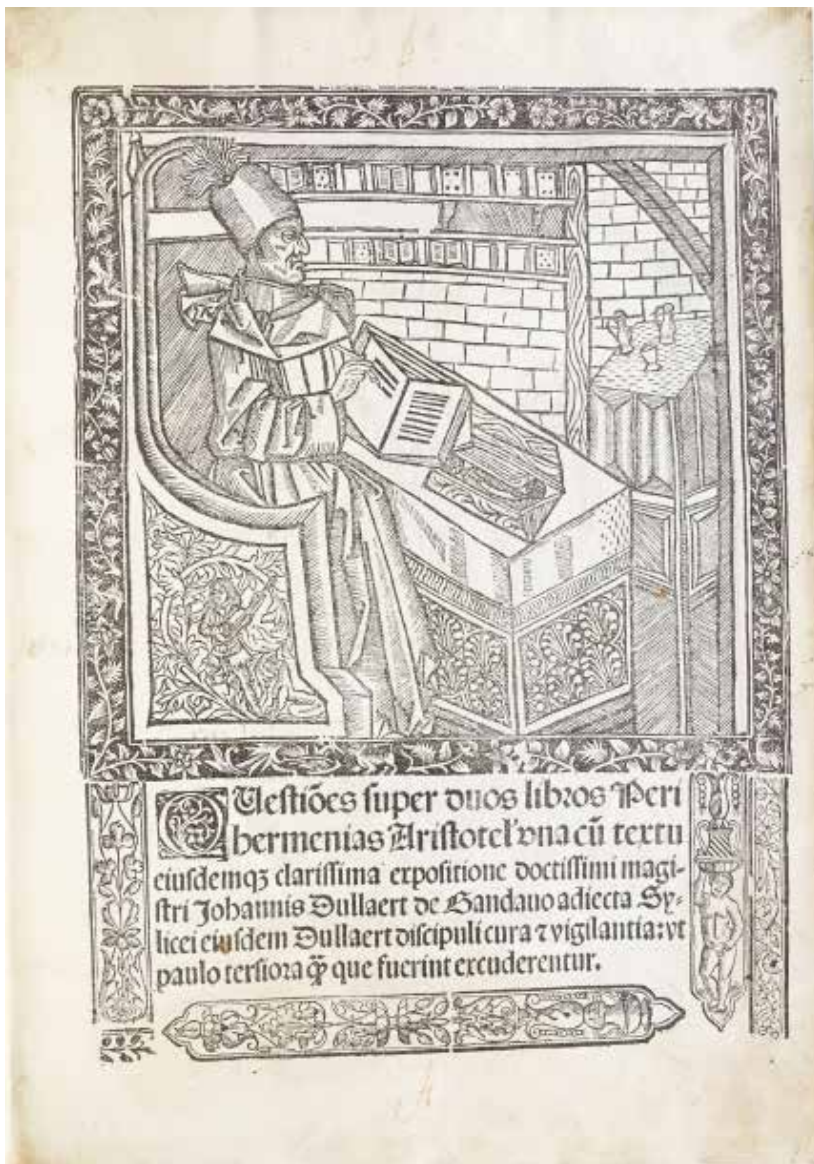 QUestiões super duos libros Peri
hermenias Aristotel' vna cũ textu
eiusdemqꝫ clarissima expositione doctissimi magi-
stri Johannis Dullaert de Gandauo adiecta Sy-
licei eiusdem Dullaert discipuli cura ⁊ vigilantia: vt
paulo tersiora q̃ꝫ que fuerint excuderentur.